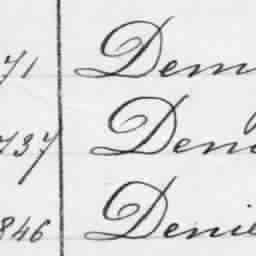 71 Dem
737 Den
846 Denie